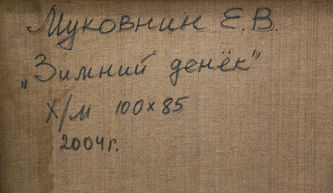 Муковнин Е.В.
„Зимний денёк"
Х/м 100x85
2004г.